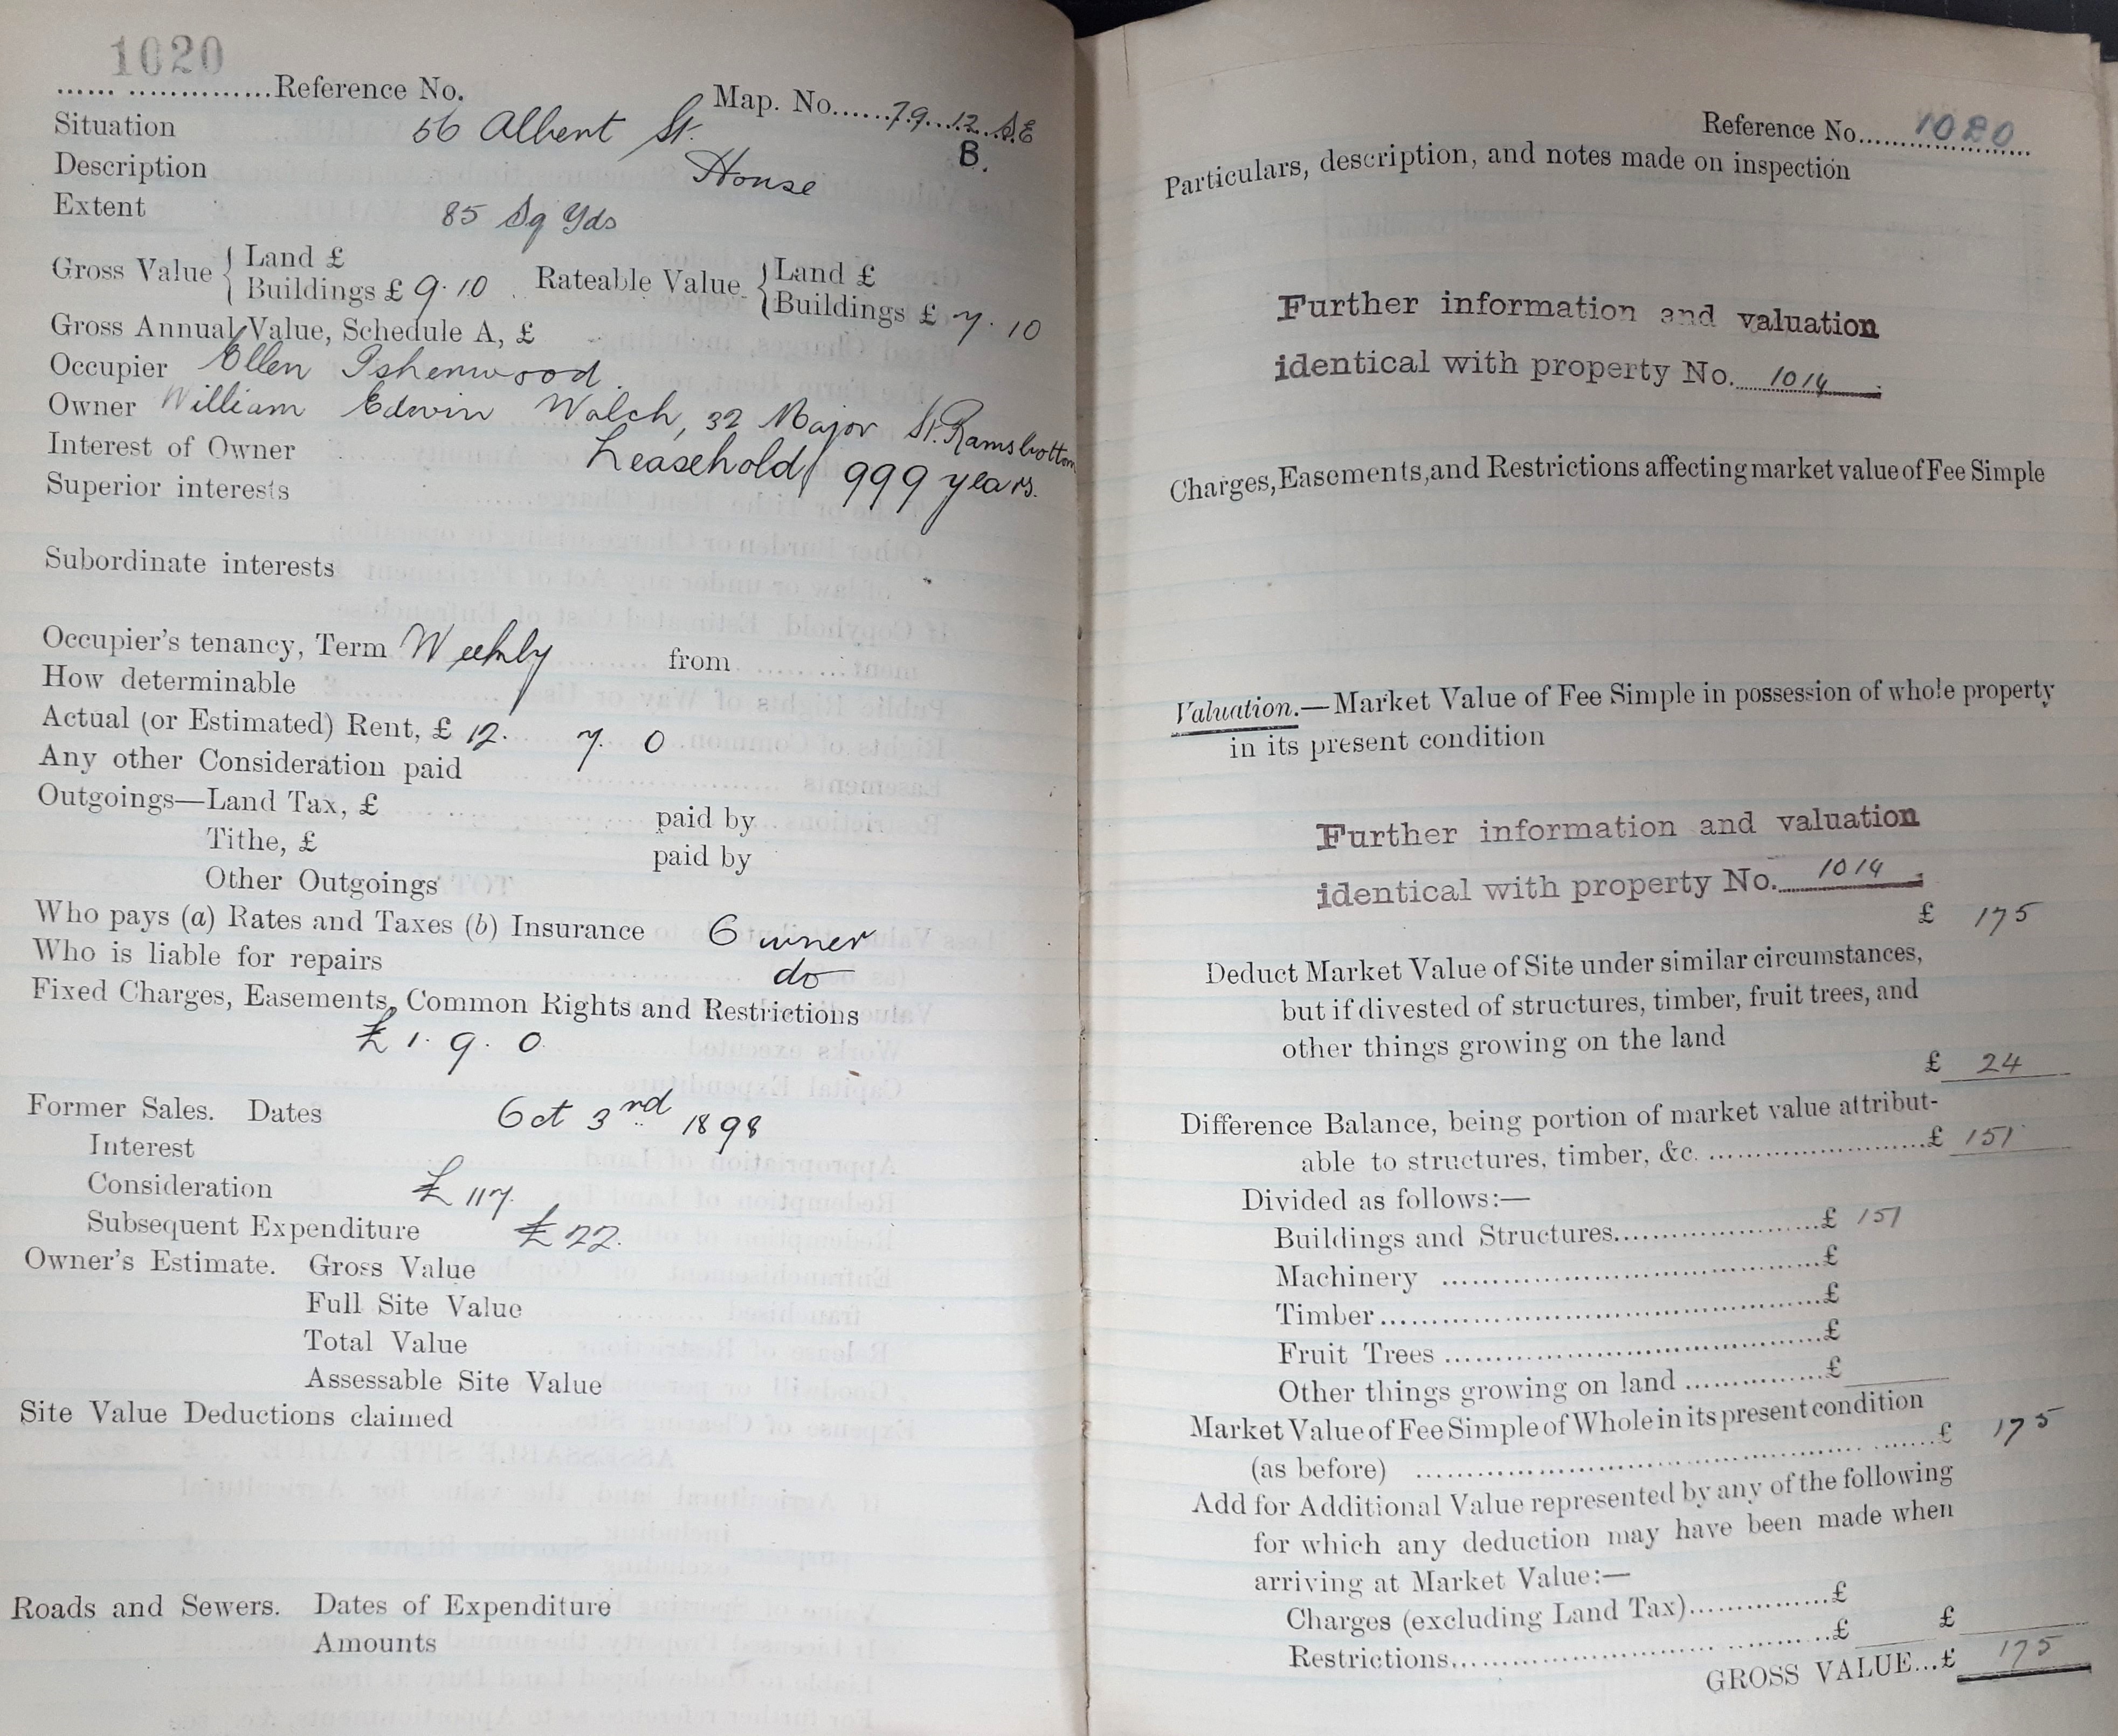 1020
...................Reference No.
Map. No......79..12..S.E
B.
Situation 56 Albert St.
Description House
Extent 85 Sq Yds
Gross Value { Land £
Buildings £ 9.10
Rateable Value { Land £
Buildings £ 7.10
Gross Annual Value, Schedule A, £
Occupier Ellen Isherwood.
Owner William Edwin Walch, 32 Major St. Ramsbottom
Interest of Owner Leasehold 999 years.
Superior interests
Subordinate interests
Occupier's tenancy, Term Weekly from
How determinable
Actual (or Estimated) Rent, £ 12. 7. 0
Any other Consideration paid
Outgoings—Land Tax, £ paid by
Tithe, £ paid by
Other Outgoings
Who pays (a) Rates and Taxes (b) Insurance Owner
Who is liable for repairs do
Fixed Charges, Easements, Common Rights and Restrictions
£ 1. 9. 0
Former Sales. Dates Oct 3rd 1898
Interest
Consideration £ 117.
Subsequent Expenditure £ 22.
Owner's Estimate. Gross Value
Full Site Value
Total Value
Assessable Site Value
Site Value Deductions claimed
Roads and Sewers. Dates of Expenditure
Amounts
Reference No......1020
Particulars, description, and notes made on inspection
Further information and valuation
identical with property No. 1014
Charges, Easements, and Restrictions affecting market value of Fee Simple
Valuation.—Market Value of Fee Simple in possession of whole property
in its present condition
Further information and valuation
identical with property No. 1014
£ 175
Deduct Market Value of Site under similar circumstances,
but if divested of structures, timber, fruit trees, and
other things growing on the land
£ 24
Difference Balance, being portion of market value attribut-
able to structures, timber, &c. ........................£ 151
Divided as follows:—
Buildings and Structures......................£ 151
Machinery ........................................£
Timber..............................................£
Fruit Trees ........................................£
Other things growing on land ...............£
Market Value of Fee Simple of Whole in its present condition
(as before) ........................................£ 175
Add for Additional Value represented by any of the following
for which any deduction may have been made when
arriving at Market Value:—
Charges (excluding Land Tax)...............£
Restrictions........................................£ £
GROSS VALUE...£ 175